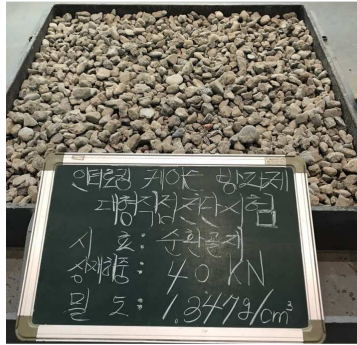 인터로킹 케이슨 방파제
대형직접전단시험
시 료 : 순환골재
상재하중 : 40 KN
밀 도 : 1.347g/cm³